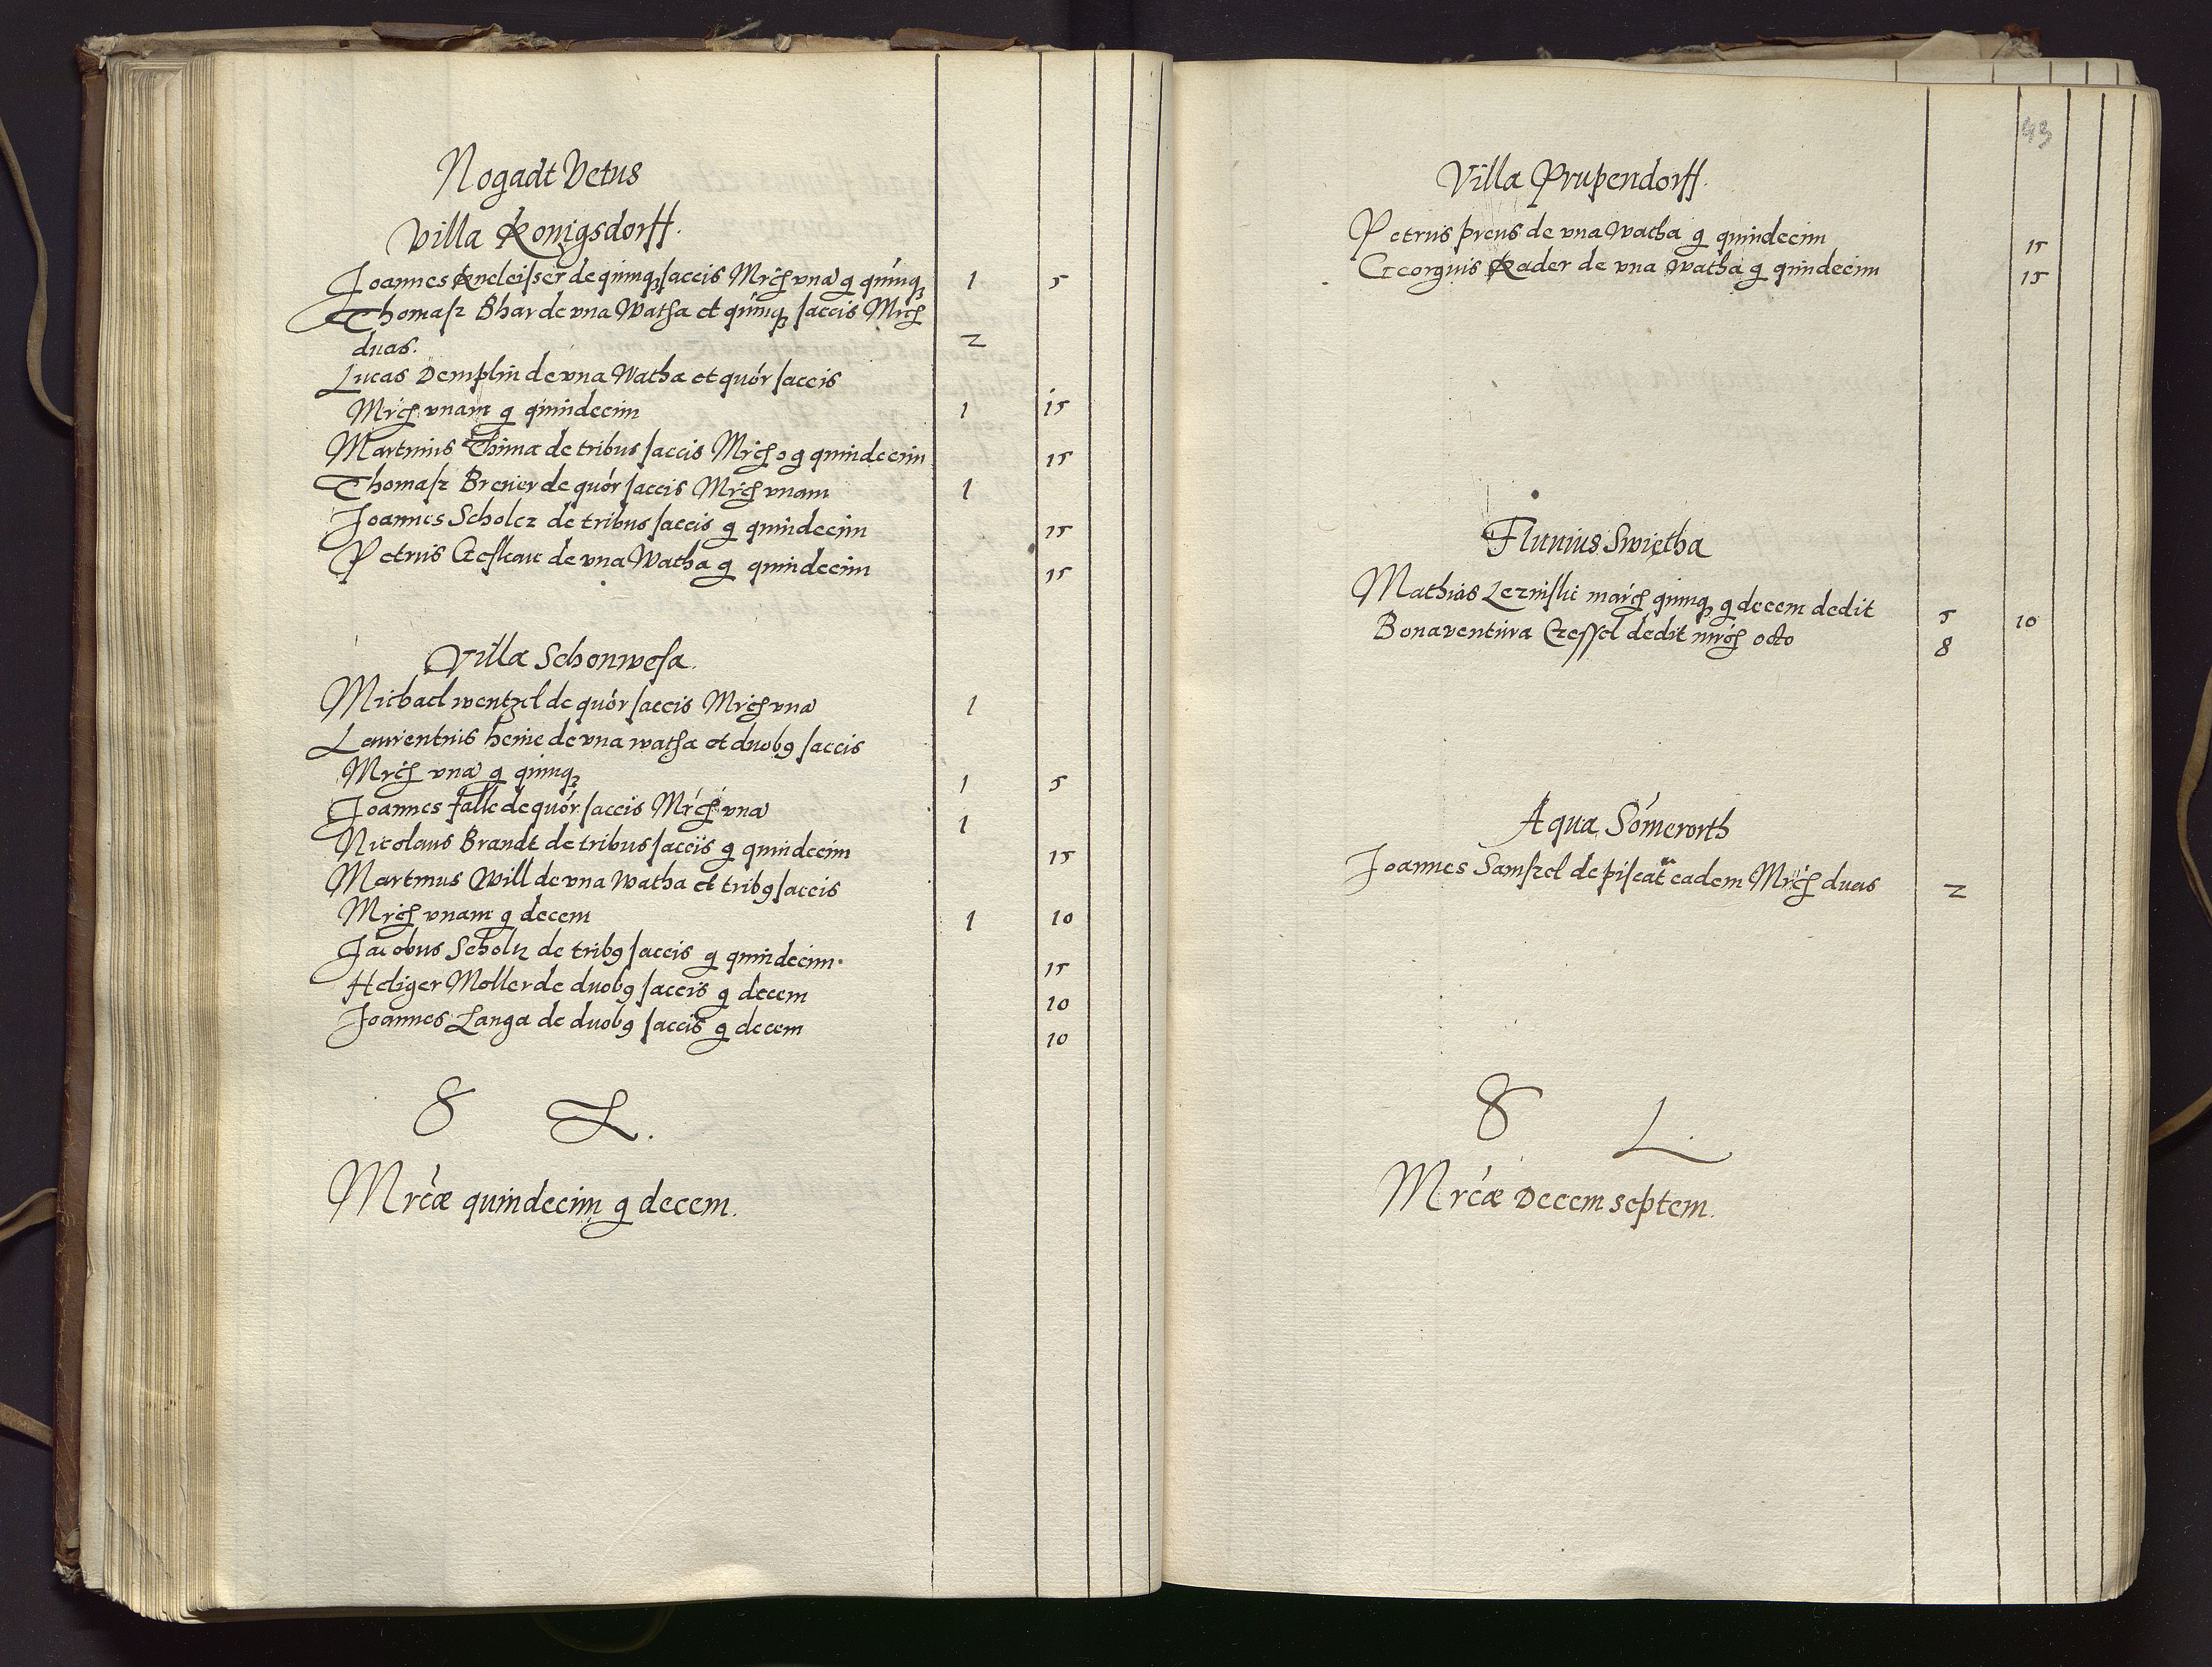 Nogadt Vetus
Villa Konigsdorff.
Joannes Kncleisser de quinq saccis Mrcħ vnā g quinq 1 5
Thomasz Bhar de vna Watha et quinq saccis Mrcħ
duas. 2
Lucas Demplin de vna Watha et quór saccis
Mrcħ vnam g quindecim 1 15
Martinus Thima de tribus saccis Mrcħ o g quindecim 15
Thomasz Breuer de quór saccis Mrcħ vnam 1
Joannes Scholcz de tribus saccis g quindecim 15
Petrus Geskau de vna Watha g quindecim 15
Villa Schonwesa.
Michael wentzel de quór saccis Mrcħ vnā 1
Laurentius heine de vna watha et duobq saccis
Mrcħ vnā g quinq 1 5
Joannes falle de quór saccis Mrcħ vnā 1
Nicolaus Brandt de tribus saccis g quindecim 15
Martinus Will de vna Watha et tribq saccis
Mrcħ vnam g decem 1 10
Jacobus Scholtz de tribq saccis g quindecim. 15
Heliger Moller de duobq saccis g decem 10
Joannes Langa de duobq saccis g decem 10
8 L.
Mrcæ quindecim g decem.
43
Villa Prupendorff.
Petrus preus de vna Watha g quindecim 15
Georgius Kader de vna Watha g quindecim 15
Fluuius Swiętha
Mathias Lezniski marcħ quinq g decem dedit 5 10
Bonaventura Gessel dedit mrcħ octo 8
Aqua Somerorth
Joannes Samszel de piscat eadem Mrcħ duas 2
8 L.
Mrcæ Decem septem.